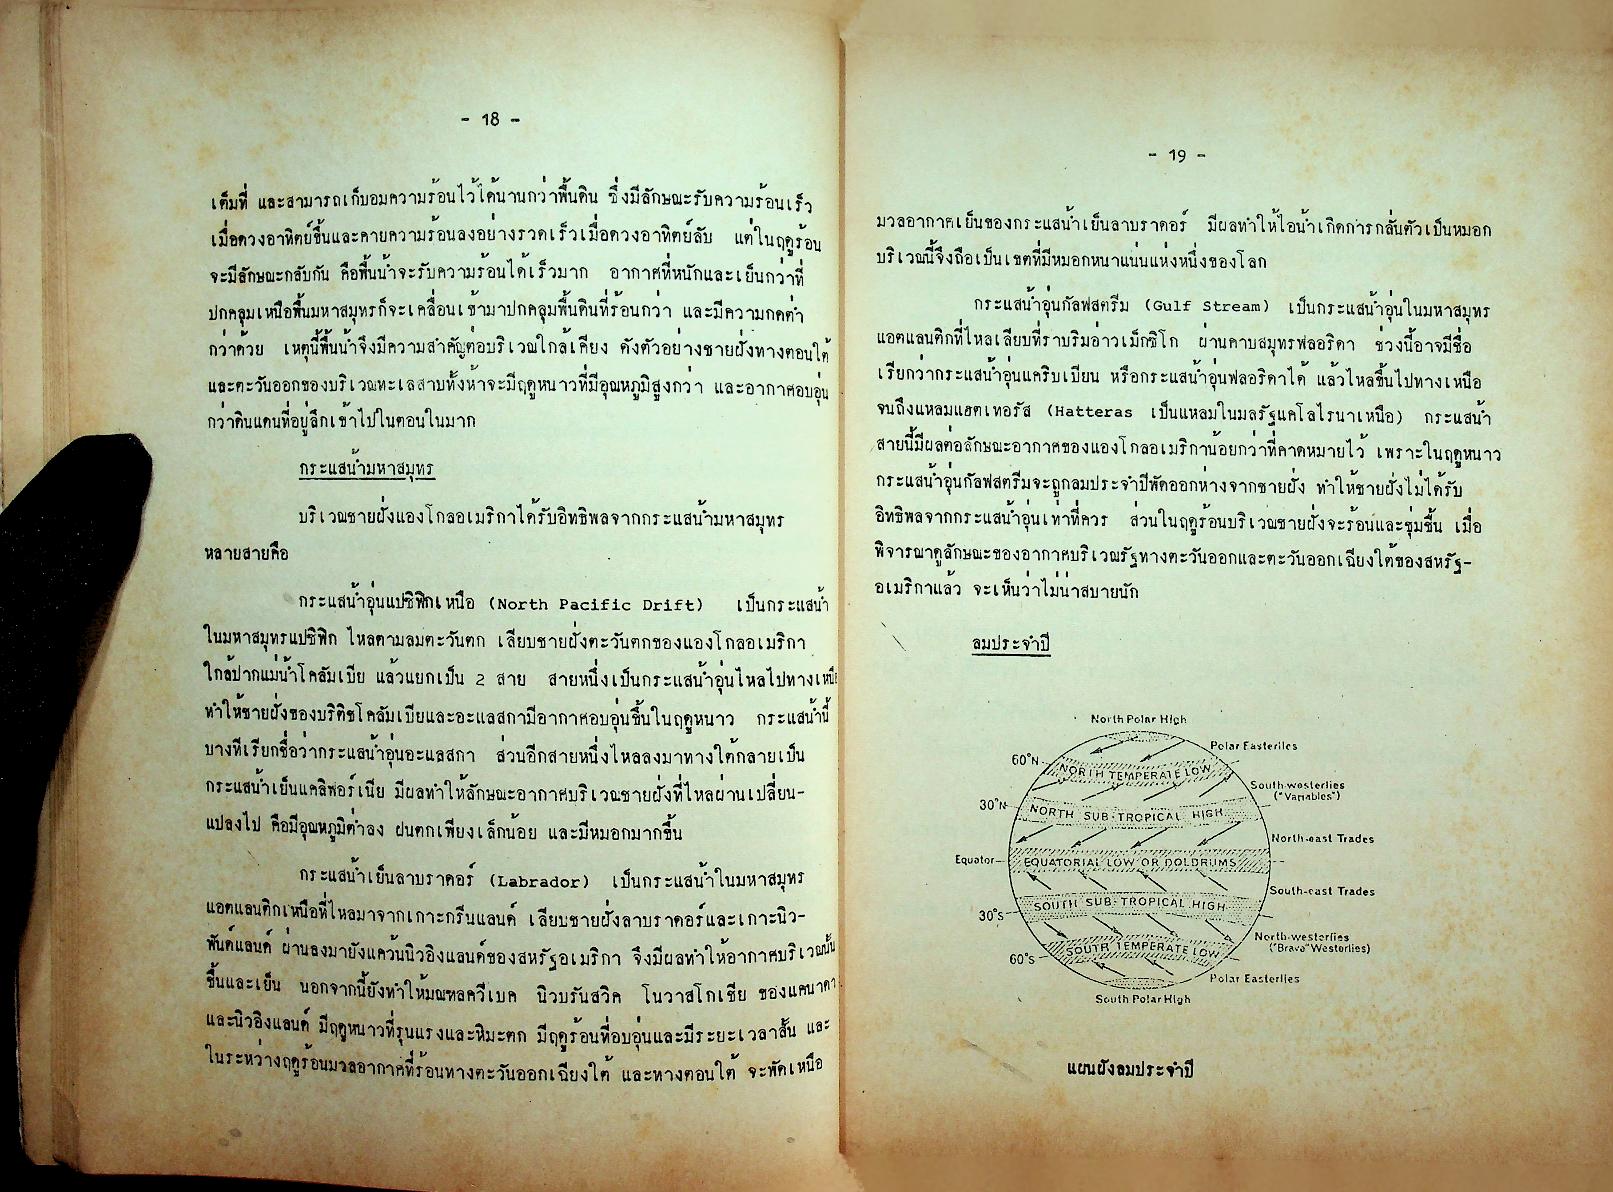 - 18 -
เต็มที่ และสามารถเก็บอมความร้อนไว้ได้นานกว่าพื้นดิน ซึ่งมีลักษณะรับความร้อนเร็ว
เมื่อดวงอาทิตย์ขึ้นและคายความร้อนลงอย่างรวดเร็วเมื่อดวงอาทิตย์ลับ แต่ในฤดูร้อน
จะมีลักษณะกลับกัน คือพื้นน้ำจะรับความร้อนได้เร็วมาก อากาศที่หนักและเย็นกว่าที่
ปกคลุมเหนือพื้นมหาสมุทรก็จะเคลื่อนเข้ามาปกคลุมพื้นดินที่ร้อนกว่า และมีความกดต่ำ
กว่าด้วย เหตุนี้พื้นน้ำจึงมีความสำคัญต่อบริเวณใกล้เคียง ดังตัวอย่างชายฝั่งทางตอนใต้
และตะวันออกของบริเวณทะเลสาบทั้งห้าจะมีฤดูหนาวที่มีอุณหภูมิสูงกว่า และอากาศอบอุ่น
กว่าดินแดนที่อยู่ลึกเข้าไปในตอนในมาก
กระแสน้ำมหาสมุทร
บริเวณชายฝั่งแองโกลอเมริกาได้รับอิทธิพลจากกระแสน้ำมหาสมุทร
หลายสายคือ
กระแสน้ำอุ่นแปซิฟิกเหนือ (North Pacific Drift) เป็นกระแสน้ำ
ในมหาสมุทรแปซิฟิก ไหลตามลมตะวันตก เลียบชายฝั่งตะวันตกของแองโกลอเมริกา
ใกล้ปากแม่น้ำโคลัมเบีย แล้วแยกเป็น 2 สาย สายหนึ่งเป็นกระแสน้ำอุ่นไหลไปทางเหนือ
ทำให้ชายฝั่งของบริติชโคลัมเบียและอะแลสกามีอากาศอบอุ่นขึ้นในฤดูหนาว กระแสน้ำนี้
บางทีเรียกชื่อว่ากระแสน้ำอุ่นอะแลสกา ส่วนอีกสายหนึ่งไหลลงมาทางใต้กลายเป็น
กระแสน้ำเย็นแคลิฟอร์เนีย มีผลทำให้ลักษณะอากาศบริเวณชายฝั่งที่ไหลผ่านเปลี่ยน-
แปลงไป คือมีอุณหภูมิต่ำลง ฝนตกเพียงเล็กน้อย และมีหมอกมากขึ้น
กระแสน้ำเย็นลาบราดอร์ (Labrador) เป็นกระแสน้ำในมหาสมุทร
แอตแลนติกเหนือที่ไหลมาจากเกาะกรีนแลนด์ เลียบชายฝั่งลาบราดอร์และเกาะนิว-
ฟันด์แลนด์ ผ่านลงมายังแคว้นนิวอิงแลนด์ของสหรัฐอเมริกา จึงมีผลทำให้อากาศบริเวณนั้น
ชื้นและเย็น นอกจากนี้ยังทำให้มณฑลควีเบค นิวบรันสวิค โนวาสโกเชีย ของแคนาดา
และนิวอิงแลนด์ มีฤดูหนาวที่รุนแรงและหิมะตก มีฤดูร้อนที่อบอุ่นและมีระยะเวลาสั้น และ
ในระหว่างฤดูร้อนมวลอากาศที่ร้อนทางตะวันออกเฉียงใต้ และทางตอนใต้ จะพัดเหนือ
- 19 -
มวลอากาศเย็นของกระแสน้ำเย็นลาบราดอร์ มีผลทำให้ไอน้ำเกิดการกลั่นตัวเป็นหมอก
บริเวณนี้จึงถือเป็นเขตที่มีหมอกหนาแน่นแห่งหนึ่งของโลก
กระแสน้ำอุ่นกัลฟสตรีม (Gulf Stream) เป็นกระแสน้ำอุ่นในมหาสมุทร
แอตแลนติกที่ไหลเลียบที่ราบริมอ่าวเม็กซิโก ผ่านคาบสมุทรฟลอริดา ช่วงนี้อาจมีชื่อ
เรียกว่ากระแสน้ำอุ่นแคริบเบียน หรือกระแสน้ำอุ่นฟลอริดาได้ แล้วไหลขึ้นไปทางเหนือ
จนถึงแหลมแฮตเทอรัส (Hatteras เป็นแหลมในมลรัฐแคโลไรนาเหนือ) กระแสน้ำ
สายนี้มีผลต่อลักษณะอากาศของแองโกลอเมริกาน้อยกว่าที่คาดหมายไว้ เพราะในฤดูหนาว
กระแสน้ำอุ่นกัลฟสตรีมจะถูกลมประจำปีพัดออกห่างจากชายฝั่ง ทำให้ชายฝั่งไม่ได้รับ
อิทธิพลจากกระแสน้ำอุ่นเท่าที่ควร ส่วนในฤดูร้อนบริเวณชายฝั่งจะร้อนและชุ่มชื้น เมื่อ
พิจารณาดูลักษณะของอากาศบริเวณรัฐทางตะวันออกและตะวันออกเฉียงใต้ของสหรัฐ-
อเมริกาแล้ว จะเห็นว่าไม่น่าสบายนัก
ลมประจำปี
North Polar High
Polar Easterlies
60°N
NORTH TEMPERATE LOW
South-westerlies
("Variables")
30°N
NORTH SUB-TROPICAL HIGH
North-east Trades
Equator
EQUATORIAL LOW OR DOLDRUMS
South-east Trades
SOUTH SUB-TROPICAL HIGH
30°S
North-westerlies
("Brave" Westerlies)
SOUTH TEMPERATE LOW
60°S
Polar Easterlies
South Polar High
แผนผังลมประจำปี